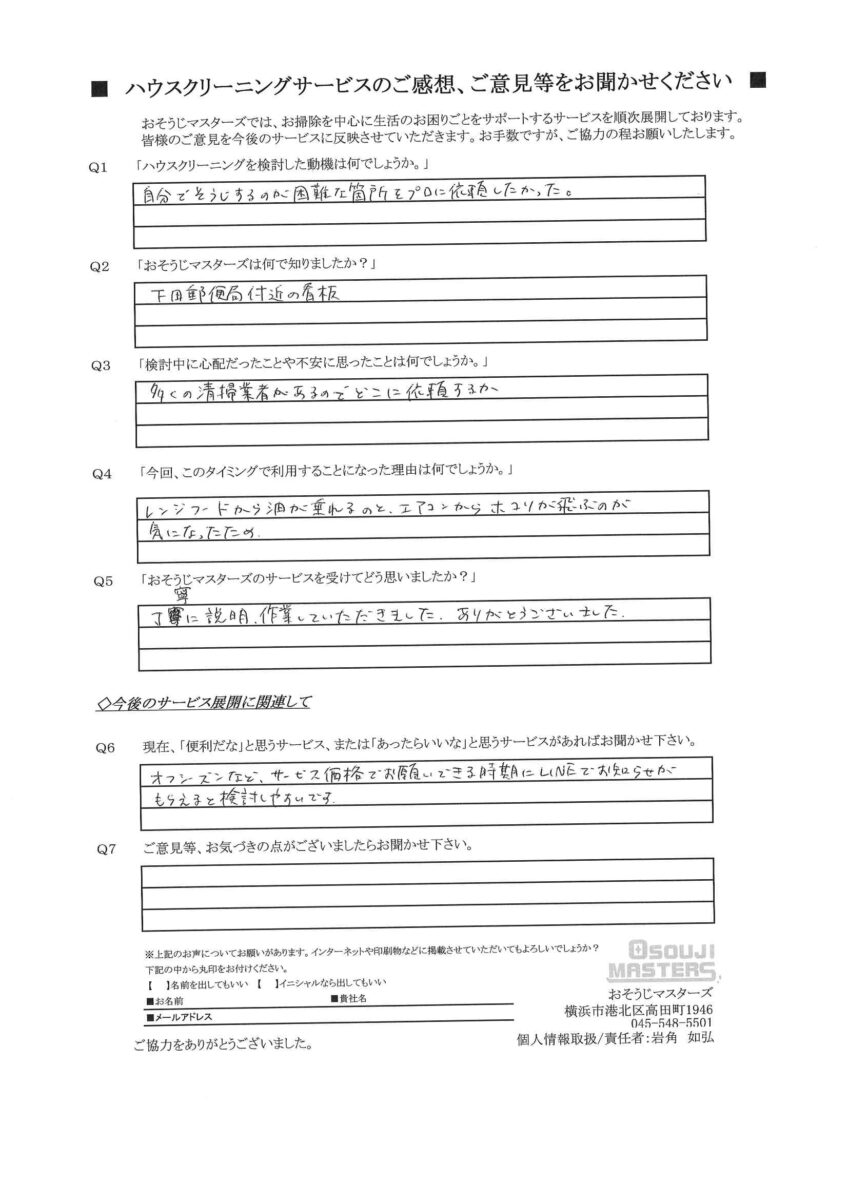 ■ ハウスクリーニングサービスのご感想、ご意見等をお聞かせください ■
おそうじマスターズでは、お掃除を中心に生活のお困りごとをサポートするサービスを順次展開しております。
皆様のご意見を今後のサービスに反映させていただきます。お手数ですが、ご協力の程お願いしたします。
Q1 「ハウスクリーニングを検討した動機は何でしょうか。」
自分でそうじするのが困難な箇所をプロに依頼したかった。
Q2 「おそうじマスターズは何で知りましたか？」
下田郵便局付近の看板
Q3 「検討中に心配だったことや不安に思ったことは何でしょうか。」
多くの清掃業者があるのでどこに依頼するか
Q4 「今回、このタイミングで利用することになった理由は何でしょうか。」
レンジフードから油が垂れるのと、エアコンからホコリが飛ぶのが
気になったため.
Q5 「おそうじマスターズのサービスを受けてどう思いましたか？」
寧
丁寧に説明、作業していただきました. ありがとうございました.
◇今後のサービス展開に関連して
Q6 現在、「便利だな」と思うサービス、または「あったらいいな」と思うサービスがあればお聞かせ下さい。
オフシーズンなど、サービス価格でお願いできる時期にLINEでお知らせが
もらえると検討しやすいです.
Q7 ご意見等、お気づきの点がございましたらお聞かせ下さい。
※上記のお声についてお願いがあります。インターネットや印刷物などに掲載させていただいてもよろしいでしょうか？
下記の中から丸印をお付けください。
【　】名前を出してもいい 【　】イニシャルなら出してもいい
■お名前 ■貴社名
■メールアドレス
ご協力をありがとうございました。
OSOUJI
MASTERS
おそうじマスターズ
横浜市港北区高田町1946
045-548-5501
個人情報取扱/責任者：岩角 如弘